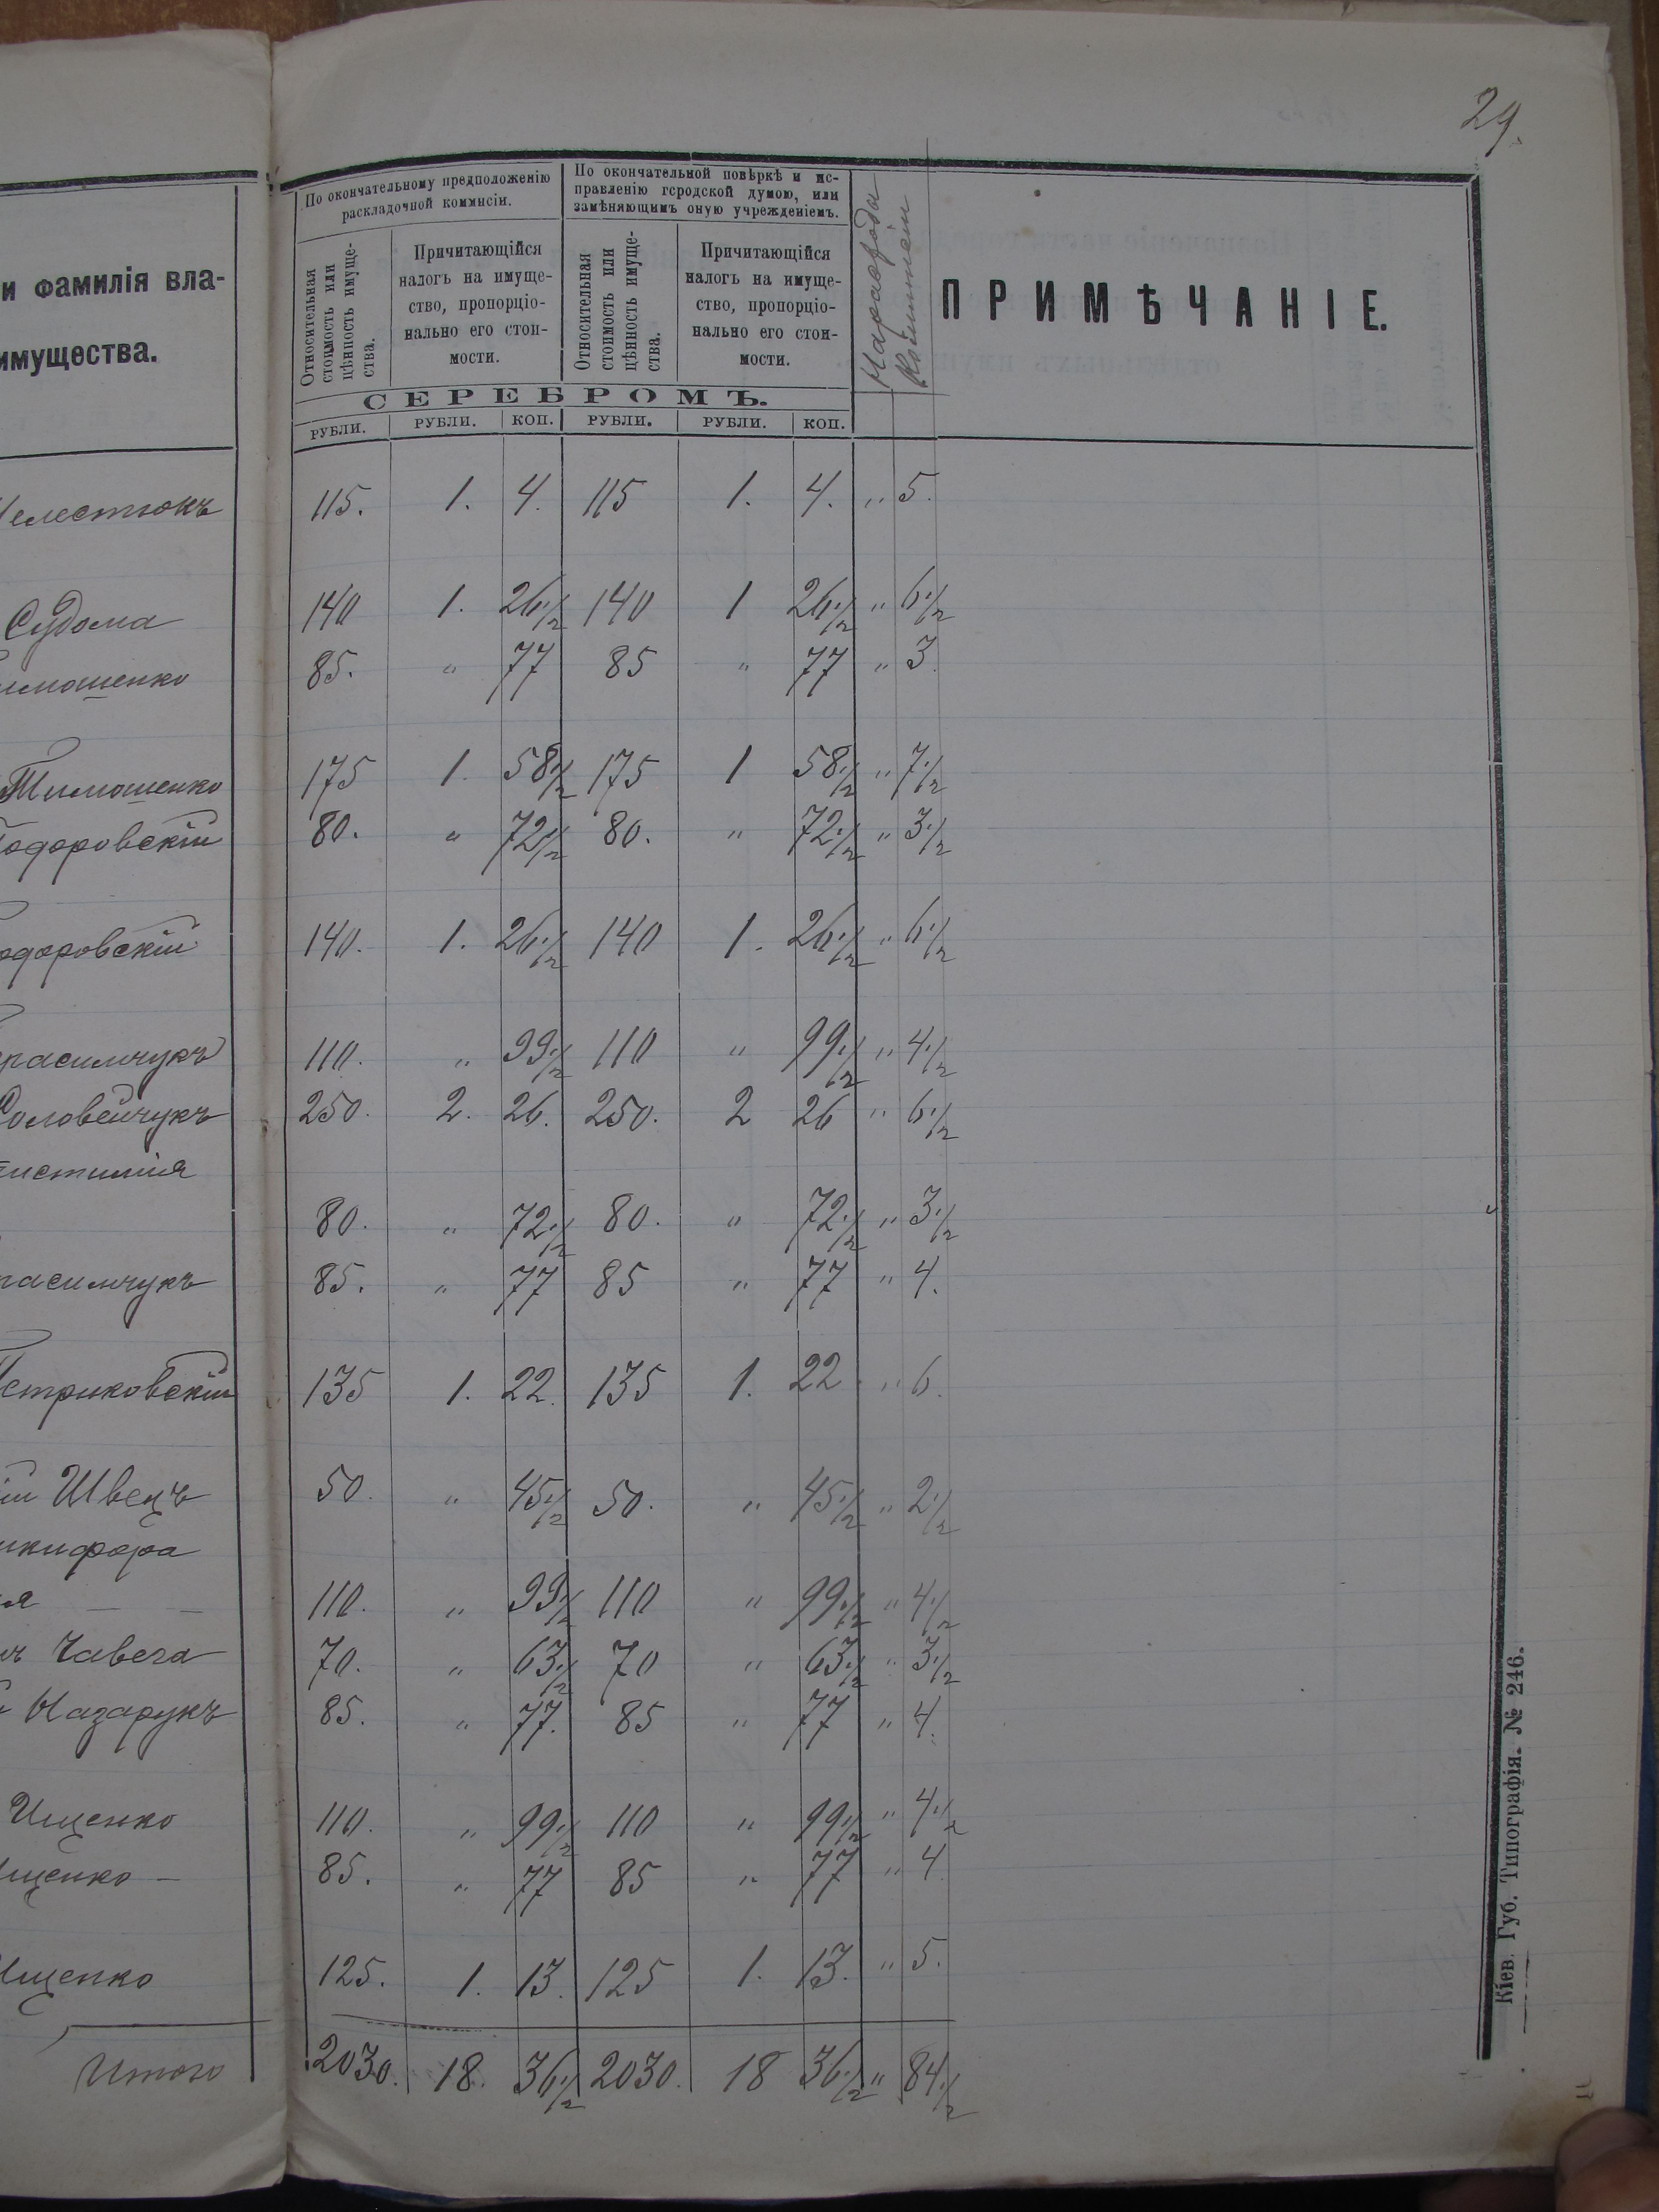 29.
и фамилія вла-
имущества.
По окончательному предположенію
раскладочной коммисіи.
По окончательной повѣркѣ и ис-
правленію городской думою, или
замѣняющимъ оную учрежденіемъ.
Относительная
стоимость или
цѣнность имуще-
ства.
Причитающійся
налогъ на имуще-
ство, пропорціо-
нально его стои-
мости.
Относительная
стоимость или
цѣнность имуще-
ства.
Причитающійся
налогъ на имуще-
ство, пропорціо-
нально его стои-
мости.
На расходы
Коммисіи
ПРИМѢЧАНІЕ.
СЕРЕБРОМЪ.
РУБЛИ. РУБЛИ. КОП. РУБЛИ. РУБЛИ. КОП.
елестюкъ 115. 1. 4. 115 1. 4. " 5.
Судома 140 1. 26 1/2 140 1 26 1/2 " 6 1/2
имошенко 85. " 77 85 " 77 " 3.
Тимошенко 175 1. 58 1/2 175 1 58 1/2 " 7 1/2
одоровскій 80. " 72 1/2 80. " 72 1/2 " 3 1/2
одоровскій 140. 1. 26 1/2 140 1. 26 1/2 " 6 1/2
расимчукъ 110. " 99 1/2 110 " 99 1/2 " 4 1/2
Соловейчукъ 250. 2. 26. 250. 2 26 " 6 1/2
истимія
80. " 72 1/2 80. " 72 1/2 " 3 1/2
расимчукъ 85. " 77 85 " 77 " 4.
Петриковскій 135 1. 22. 135 1. 22 " 6.
ій Швецъ 50. " 45 1/2 50. " 45 1/2 " 2 1/2
икифора
я — — 110. " 99 1/2 110 " 99 1/2 " 4 1/2
ъ Чавега 70. " 63 1/2 70 " 63 1/2 " 3 1/2
Назарукъ 85. " 77. 85 " 77 " 4.
Ищенко 110. " 99 1/2 110 " 99 1/2 " 4 1/2
щенко — 85. " 77 85 " 77 " 4
Ищенко 125. 1. 13. 125 1. 13. " 5.
Итого 2030. 18. 36 1/2 2030. 18 36 1/2 " 84 1/2
Кіев. Губ. Типографія. № 246.